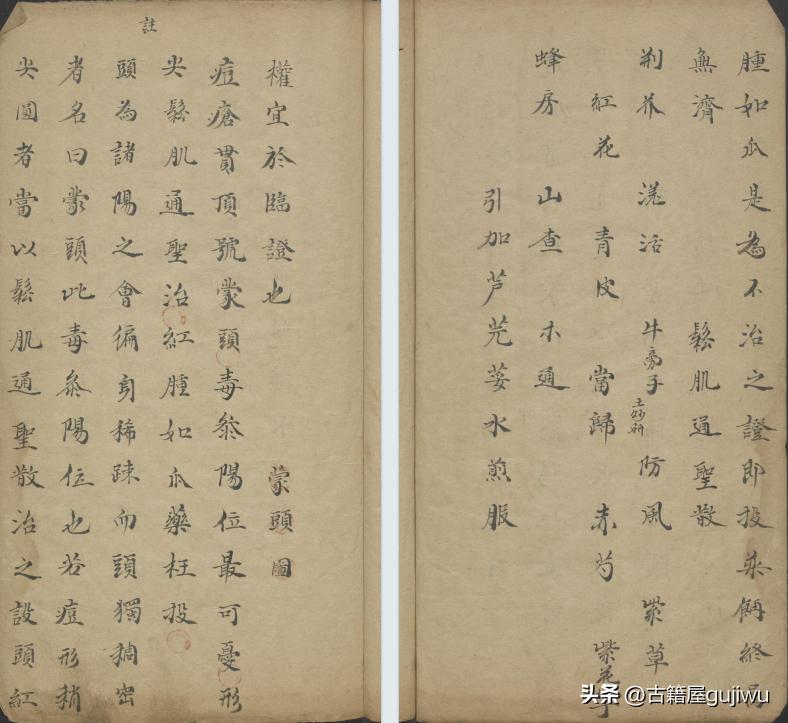 腫如瓜是為不治之證即投藥餌終歸
無濟　鬆肌通聖散
荊芥　羌活　牛蒡子土炒研　防風　紫草
紅花　青皮　當歸　赤芍　紫花
蜂房　山查　木通
引加芦芫荽水煎服
權宜於臨證也　蒙頭圖
痘瘡貫頂號蒙頭毒叅陽位最可憂形
尖鬆肌通聖治紅腫如瓜藥枉投
註
頭為諸陽之會徧身稀踈而頭獨稠密
者名曰蒙頭此毒叅陽位也若痘形稍
尖圓者當以鬆肌通聖散治之設頭紅
头条 @古籍屋gujiwu